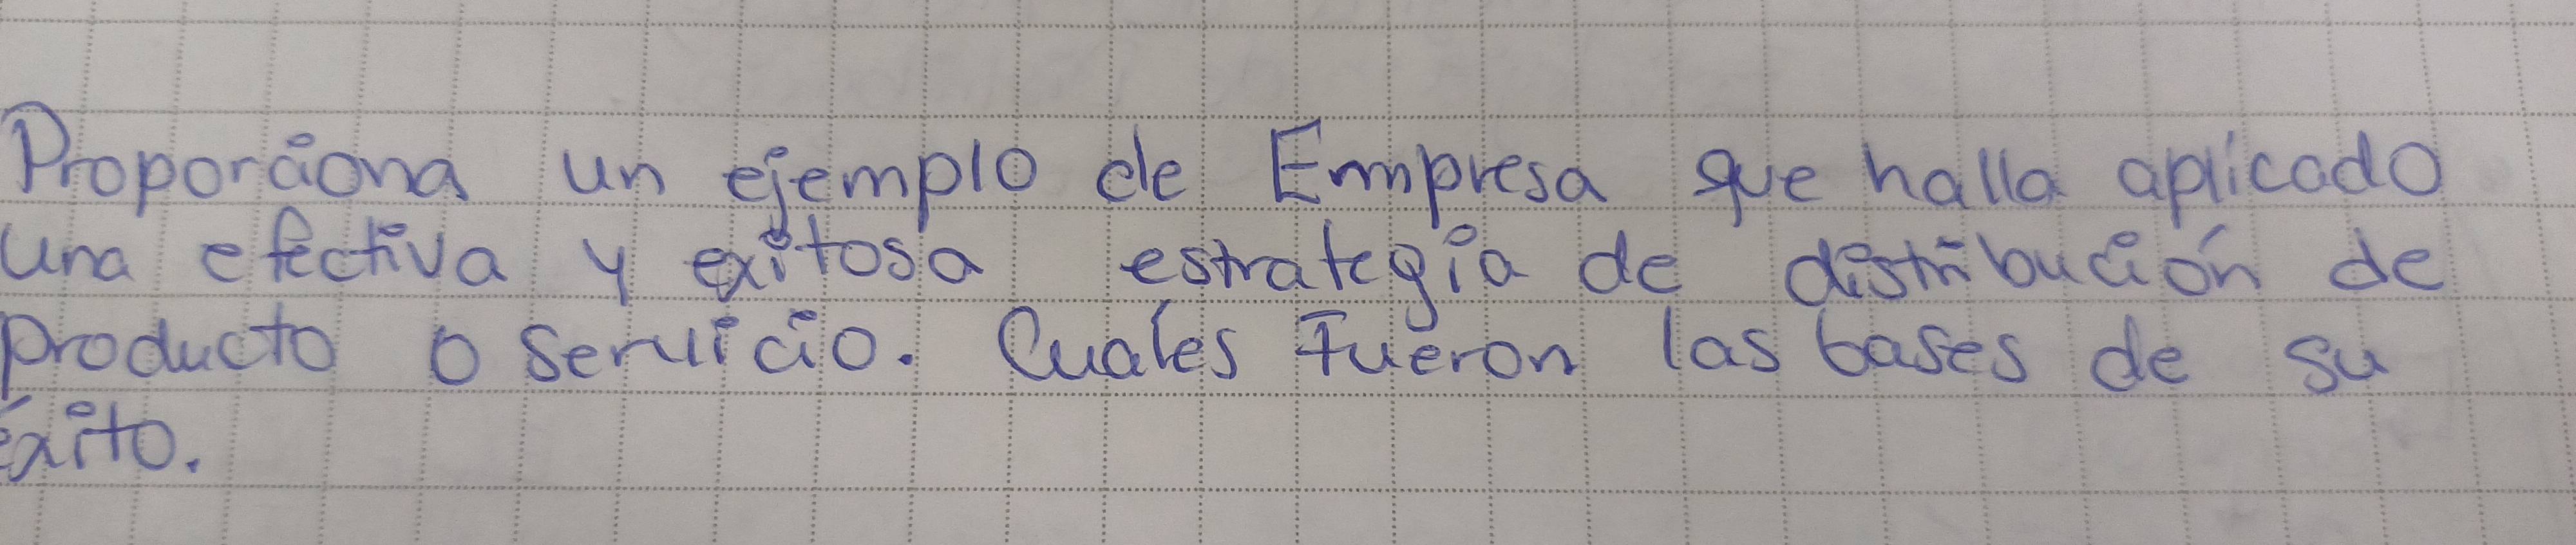 Proporciona un ejemplo de Empresa que halla aplicado
una efectiva y exitosa estrategia de distribución de
producto o servicio. Cuales Fueron las bases de su
éxito.